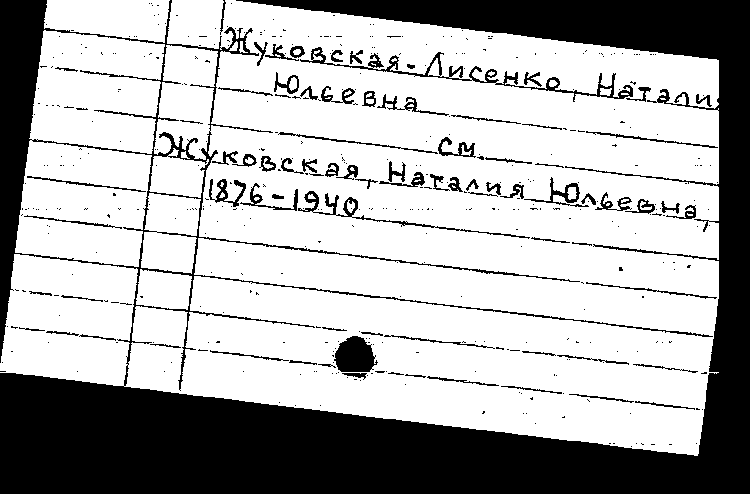 Жуковская-Лисенко, Наталия
Юльевна
см.
Жуковская, Наталия Юльевна,
1876-1940